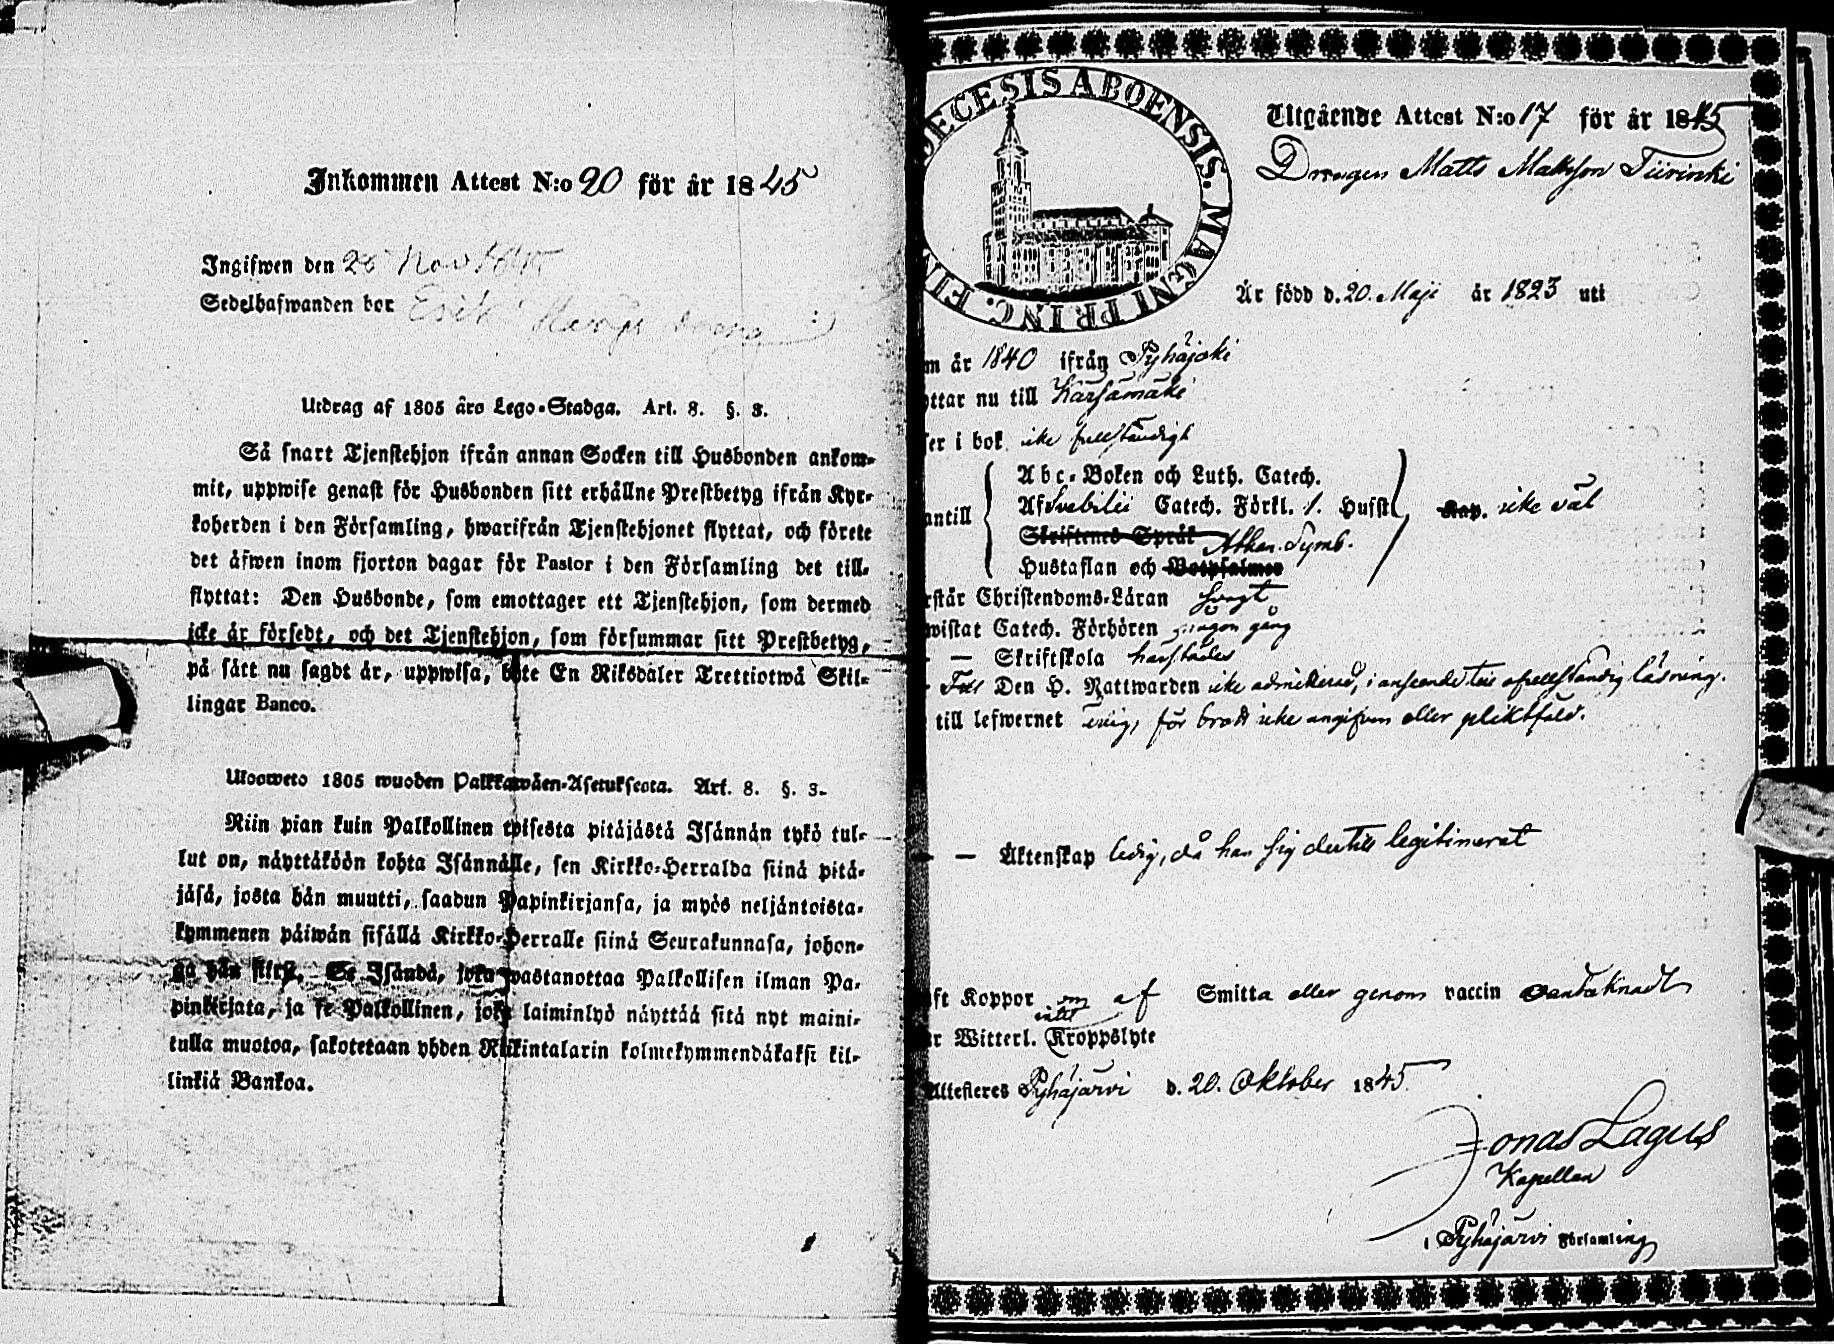 Inkommen Attest N:o 20 för år 1845
Ingifwen den 28 Nov 1845
Sedelhafwanden bor Erik
Utdrag af 1805 års Lego-Stadga. Art. 8. §. 3.
Så snart Tjenstehjon ifrån annan Socken till Husbonden ankom-
mit, uppwise genast för Husbonden sitt erhållne Prestbetyg ifrån Kyr-
koherden i den Församling, hwarifrån Tjenstehjonet flyttat, och förete
det äfwen inom fjorton dagar för Pastor i den Församling det till-
flyttat: Den Husbonde, som emottager ett Tjenstehjon, som dermed
icke är försedt, och det Tjenstehjon, som försummar sitt Prestbetyg,
på sätt nu sagdt är, uppwisa, böte En Riksdaler Trettiotwå Skil-
lingar Banco.
Ulosweto 1805 wuoden Palkkawäen-Asetuksesta. Art. 8. §. 3.
Niin pian kuin Palkollinen toisesta pitäjästä Isännän tykö tul-
lut on, näyttäköön kohta Isännälle, sen Kirkko-Herralda siinä pitä-
jäsä, josta hän muutti, saadun Papinkirjansa, ja myös neljäntoista-
kymmenen päiwän sisällä Kirkko-Herralle siinä Seurakunnasa, johon-
ga hän siirsi. Se Isändä, joka wastanottaa Palkollisen ilman Pa-
pinkirjata, ja se Palkollinen, joka laiminlyö näyttää sitä nyt maini-
tulla muotoa, sakotetaan yhden Riikintalarin kolmekymmendäkaksi kil-
linkiä Bankoa.
DECESIS ABOENSIS. MAGNI PRINC. FIN
Utgående Attest N:o 17 för år 1845
Drengen Matts Mattsson Tiirinki
Är född d. 20. Maji år 1823 uti
m år 1840 ifrån Pyhäjoki
ottar nu till Kärsämäki
ser i bok icke fullständigt
Abc-Boken och Luth. Catech.
antill Af Svebilii Catech. Förkl. 1. Husst Kap. icke väl
Skriftenes Språk Athan. Symb.
Hustaflan och Botpsalmer
rstår Christendoms-Läran svagt
wistat Catech. Förhören någon gång
— Skriftskola härstädes
Till Den H. Nattwarden icke admitterad, i anseende till ofullständig läsning.
till lefwernet ledig, för brott icke angifven eller pliktfäld.
— Äktenskap ledig, då han sig dertill legitimerat
ft Koppor om af Smitta eller genom vaccin oantecknadt
r Witterl. Kroppslyte
Attesteres Pyhäjärvi d. 20. Oktober 1845.
Jonas Lagus
Kapellan
i Pyhäjärvi Församling